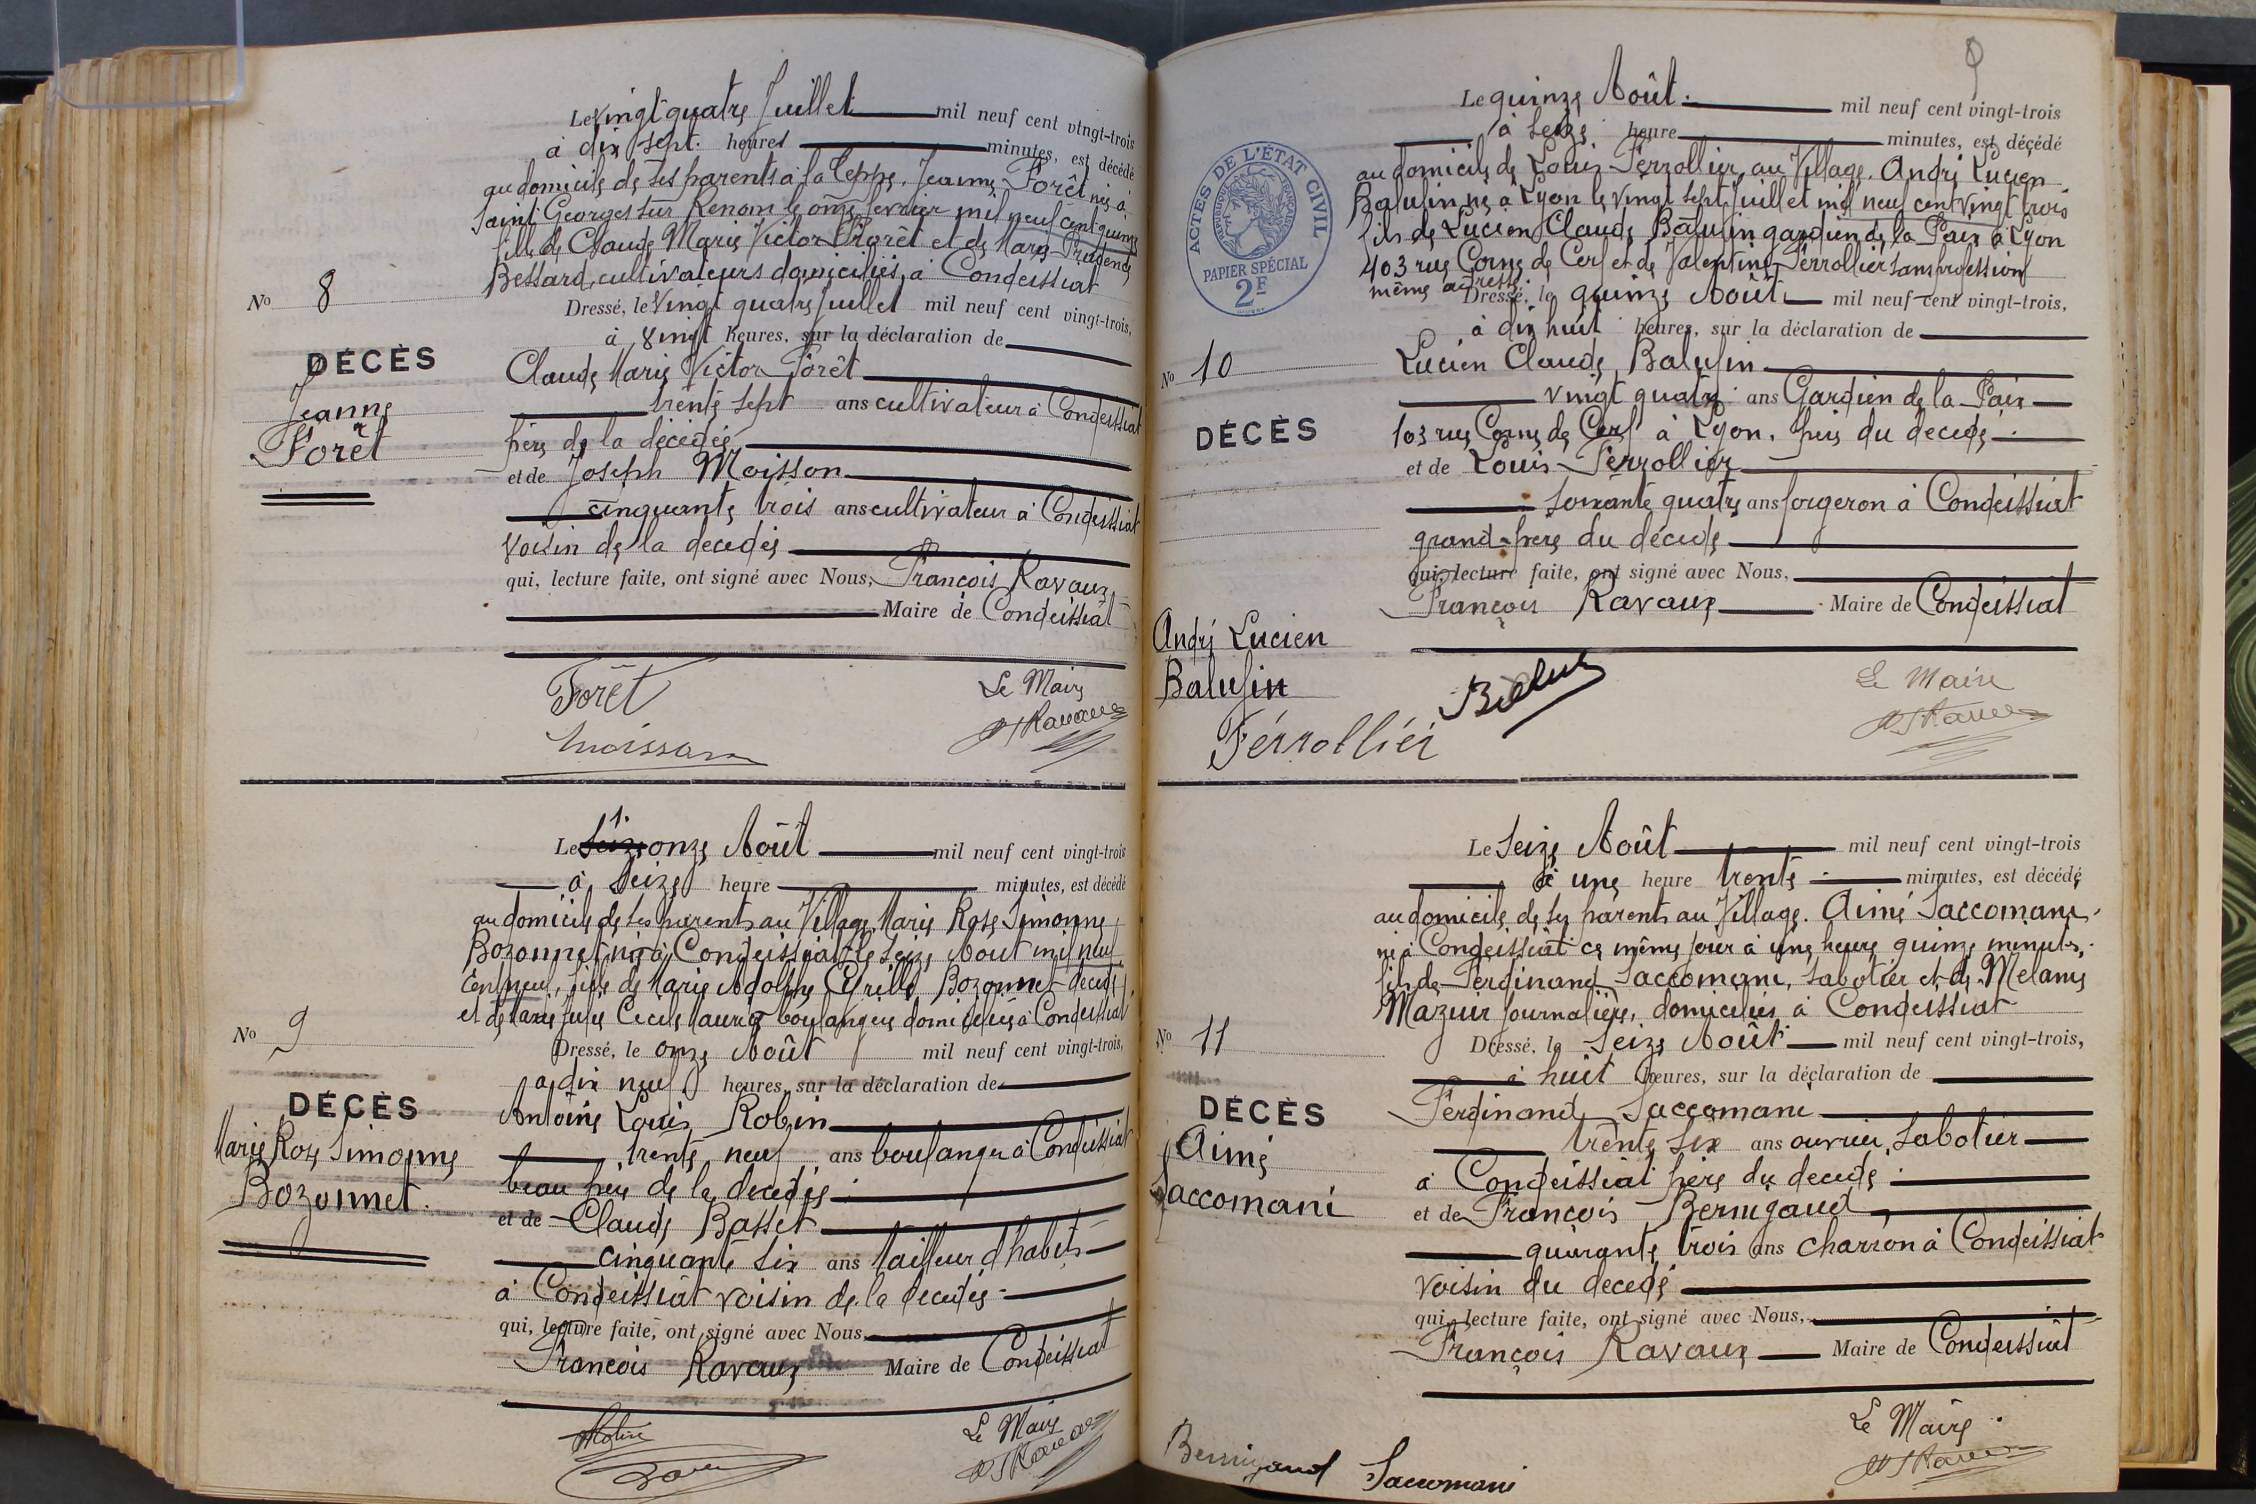 Le vingt quatre Juillet mil neuf cent vingt-trois
à dix sept heures minutes, est décédé
au domicile de ses parents à la Teppe, Jeanne Forêt née à
Saint Georges sur Renom le onze février mil neuf cent quinze
fille de Claude Marie Victor Forêt et de Marie Prudence
Bessard, cultivateurs domiciliés à Condeissiat
No 8
Dressé, le vingt quatre Juillet mil neuf cent vingt-trois,
à vingt heures, sur la déclaration de
DÉCÈS
Jeanne
Forêt
Claude Marie Victor Forêt
trente sept ans cultivateur à Condeissiat
père de la décédée
et de Joseph Moisson
cinquante trois ans cultivateur à Condeissiat
voisin de la decedée
qui, lecture faite, ont signé avec Nous, François Ravaux
Maire de Condeissiat
Forêt
Le Maire
Moisson
Le seize onze Août mil neuf cent vingt-trois
à seize heure minutes, est décédé
au domicile de ses parents au Village, Marie Rose Simonne
Bozonnet née à Condeissiat le seize Aout mil neuf
cent neuf, fille de Marie Adolphe Cyrille Bozonnet decedé
et de Marie Julie Cecile boulangers domiciliés à Condeissiat
No 9
Dressé, le onze Août mil neuf cent vingt-trois,
à dix neuf heures, sur la déclaration de
DÉCÈS
Marie Rose Simonne
Bozonnet.
Antoine Louis Robin
trente neuf ans boulanger à Condeissiat
beau frère de la decedée
et de Claude Basset
cinquante six ans tailleur d'habits
à Condeissiat voisin de la decedée
qui, lecture faite, ont signé avec Nous,
François Ravaux Maire de Condeissiat
Le Maire
9
Le quinze Août mil neuf cent vingt-trois
à seize heure minutes, est décédé
au domicile de Louis Ferrollier, au Village. André Lucien
Balufin né à Lyon le vingt sept Juillet mil neuf cent vingt trois
fils de Lucien Claude Balufin gardien de la Paix à Lyon
103 rue Corne de Cerf et de Valentine Ferrollier sans profession
même adresse.
ACTES DE L'ÉTAT CIVIL
RÉPUBLIQUE FRANÇAISE
PAPIER SPÉCIAL
2F
Dressé, le quinze Août mil neuf cent vingt-trois,
à dix huit heures, sur la déclaration de
No 10
DÉCÈS
André Lucien
Balufin
Lucien Claude Balufin
vingt quatre ans Gardien de la Paix
103 rue Corne de Cerf à Lyon, père du decede
et de Louis Ferrollier
soixante quatre ans forgeron à Condeissiat
grand-père du décédé
qui, lecture faite, ont signé avec Nous,
François Ravaux Maire de Condeissiat
Le Maire
Férrolliér
Le Seize Août mil neuf cent vingt-trois
à une heure trente minutes, est décédé
au domicile de ses parents au Village. Aimé Saccomani
né à Condeissiat ce même jour à une heure quinze minutes.
fils de Ferdinand Saccomani, Sabotier et de Melanie
Mazuir Journalière, domiciliés à Condeissiat
No 11
Dressé, le Seize Août mil neuf cent vingt-trois,
à huit heures, sur la déclaration de
DÉCÈS
Aimé
Saccomani
Ferdinand Saccomani
trente six ans ouvrier Sabotier
à Condeissiat père du decede
et de François Bernigaud
quarante trois ans charron à Condeissiat
voisin du decedé
qui, lecture faite, ont signé avec Nous,
François Ravaux Maire de Condeissiat
Le Maire
Bernigaud Saccomani